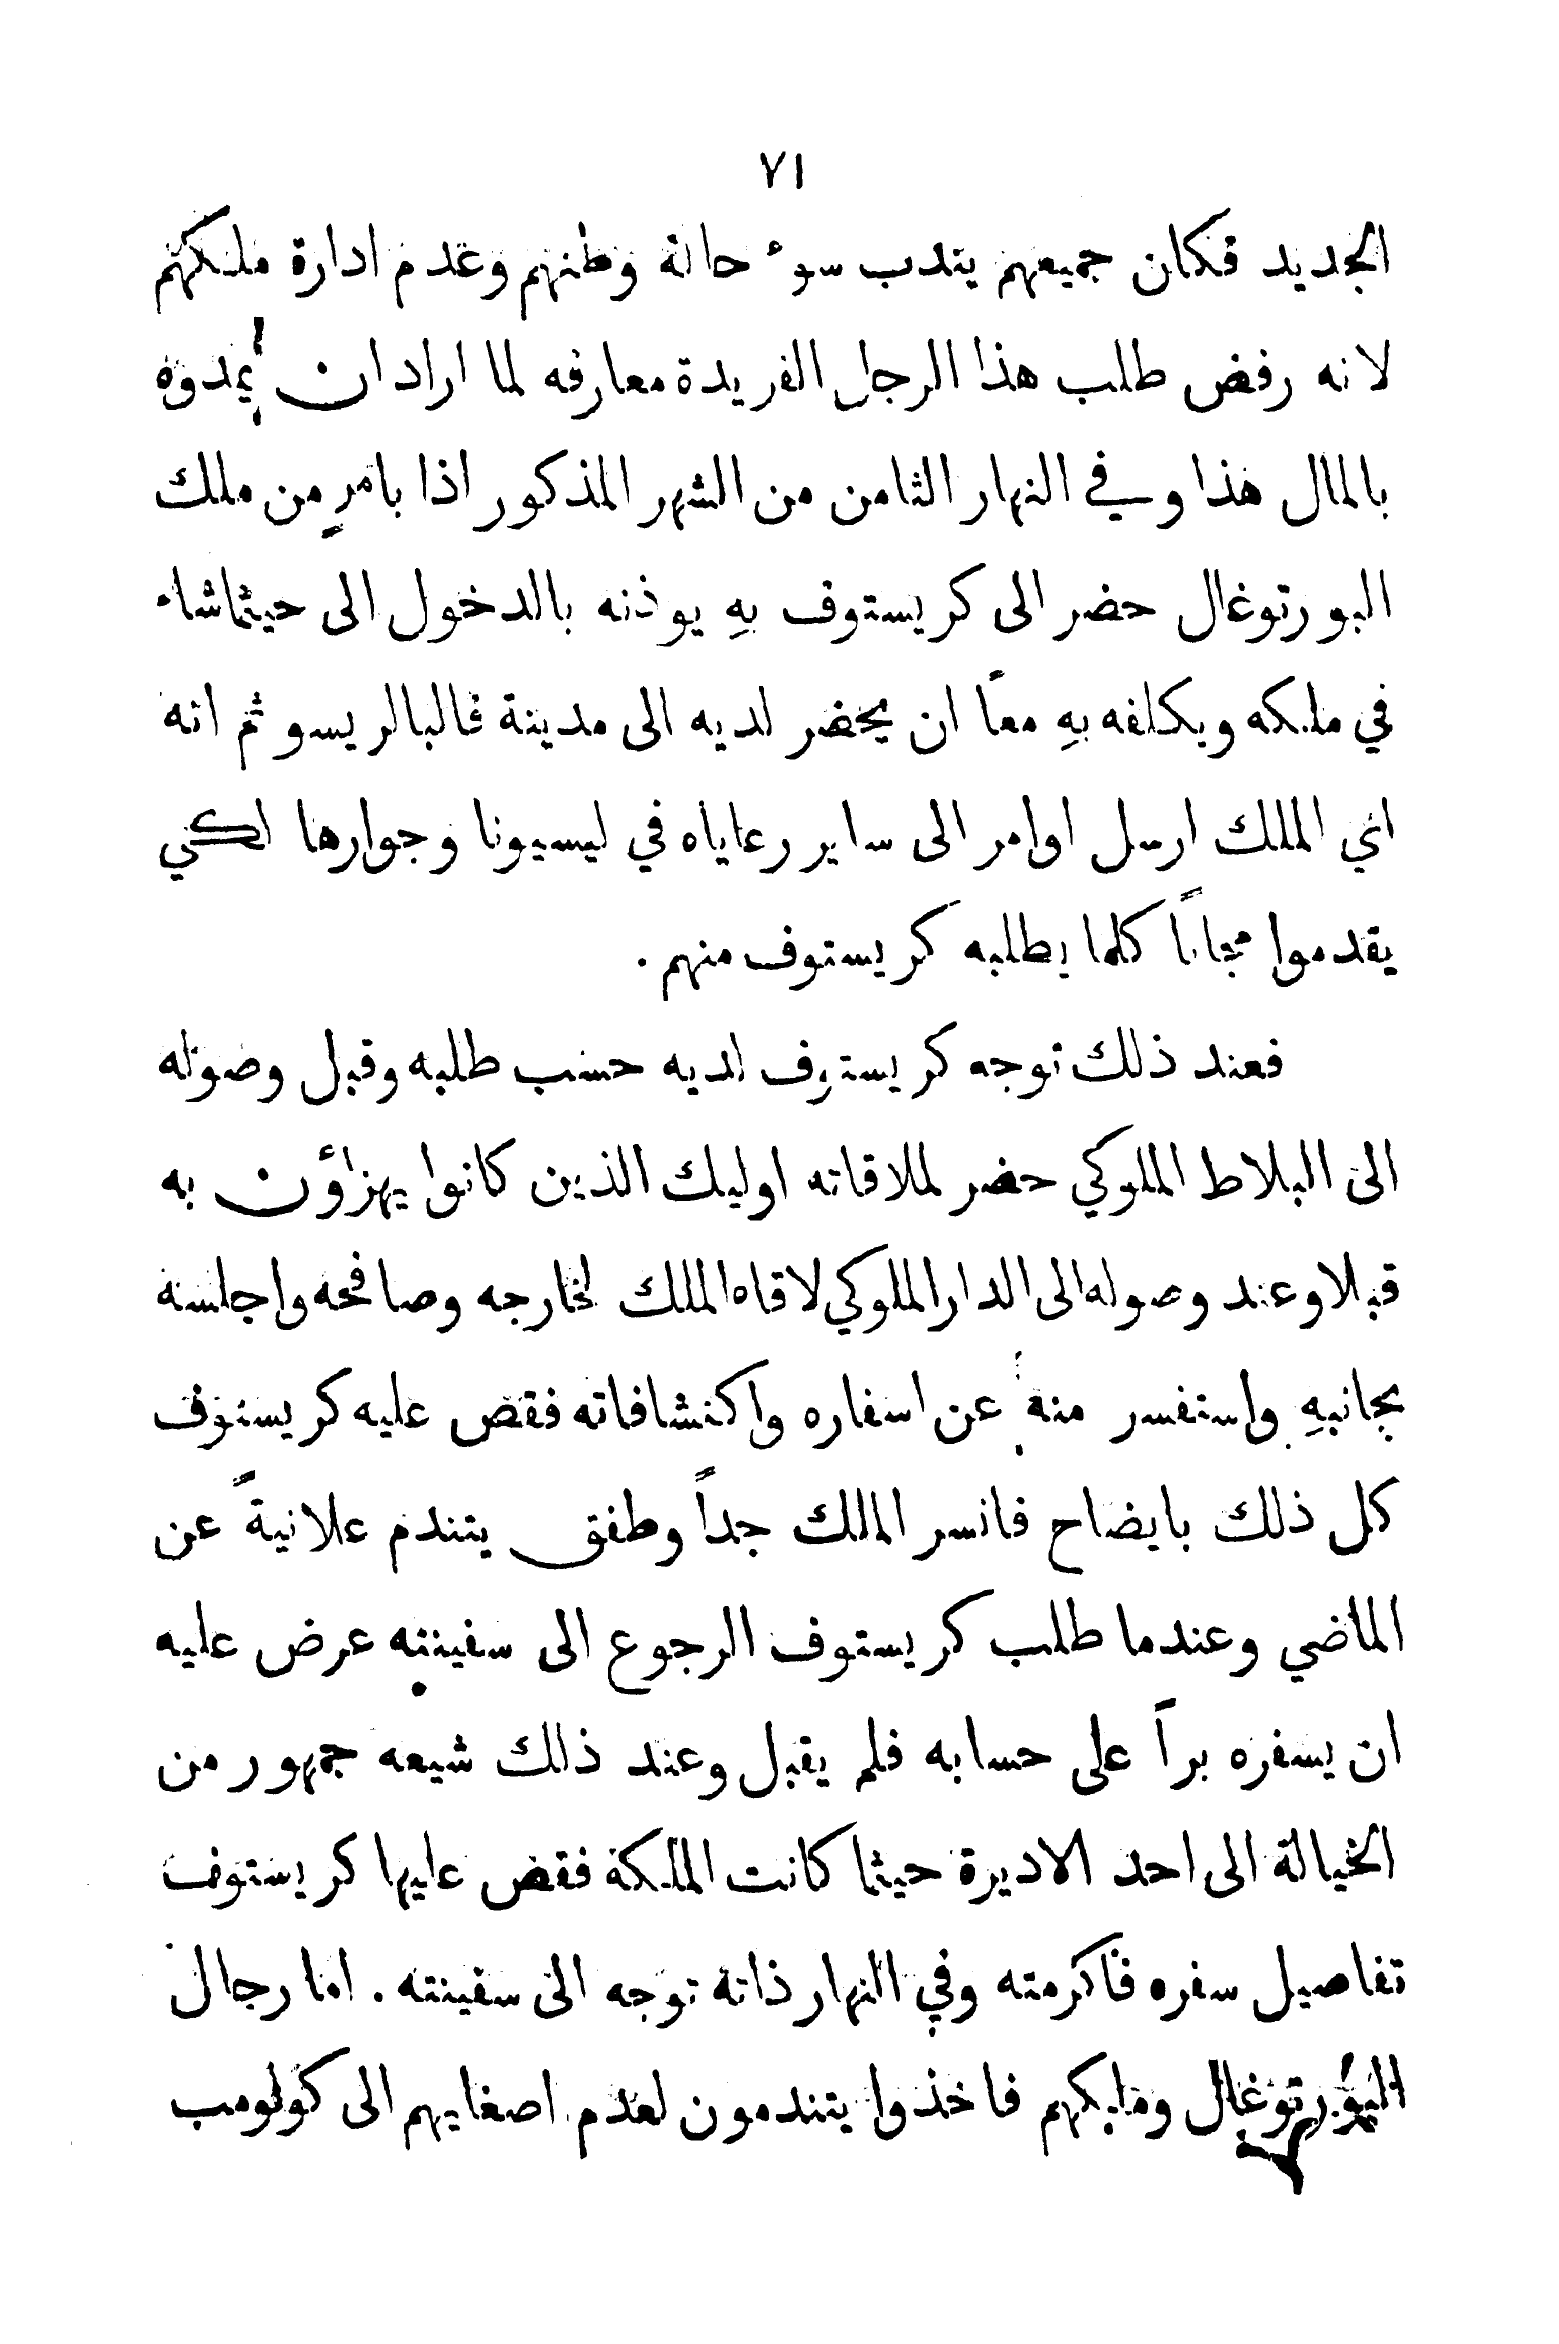 ٧١
الجديد فكان جميعهم يندب سوء حالة وطنهم وعدم ادارة ملكهم
لانه رفض طلب هذا الرجل الفريدة معارفه لما اراد ان يمدوه
بالمال هذا وفي النهار الثامن من الشهر المذكور اذا بامرٍ من ملك
البورتوغال حضر الى كريستوف بهِ يوذنه بالدخول الى حيثماشاء
في ملكه ويكلفه بهِ معاً ان يحضر لديه الى مدينة فالبالريسو ثم انه
اي الملك ارسل اوامر الى ساير رعاياه في ليسبونا وجوارها لكي
يقدموا مجاناً كلما يطلبه كريستوف منهم .
فعند ذلك توجه كريستوف لديه حسب طلبه وقبل وصوله
الى البلاط الملوكي حضر لملاقاته اوليك الذين كانوا يهزاؤن به
قبلا وعند وصوله الى الدار الملوكي لاقاه الملك لخارجه وصافحه واجلسه
بجانبهِ واستفسر منه عن اسفاره واكتشافاته فقص عليه كريستوف
كل ذلك بايضاح فانسر الملك جداً وطفق يتندم علانيةً عن
الماضي وعندما طلب كريستوف الرجوع الى سفينته عرض عليه
ان يسفره براً على حسابه فلم يقبل وعند ذلك شيعه جمهور من
الخيالة الى احد الاديرة حيثما كانت الملكة فقض عليها كريستوف
تفاصيل سفره فاكرمته وفي النهار ذاته توجه الى سفينته . اما رجال
البورتوغال وملكهم فاخذوا يتندمون لعدم اصغايهم الى كولومب